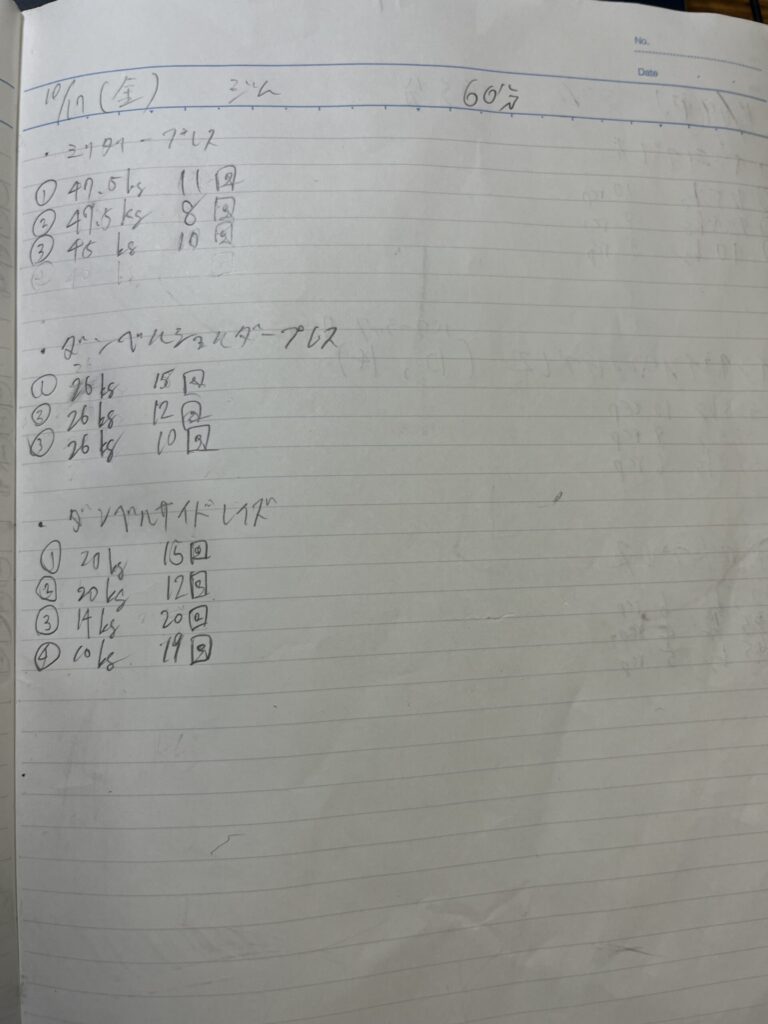 No.
Date
10/17(金) ジム 60分
・ミリタリープレス
① 47.5kg 11回
② 47.5kg 8回
③ 45kg 10回
・ダンベルショルダープレス
① 26kg 15回
② 26kg 12回
③ 26kg 10回
・ダンベルサイドレイズ
① 20kg 15回
② 20kg 12回
③ 14kg 20回
④ 10kg 19回